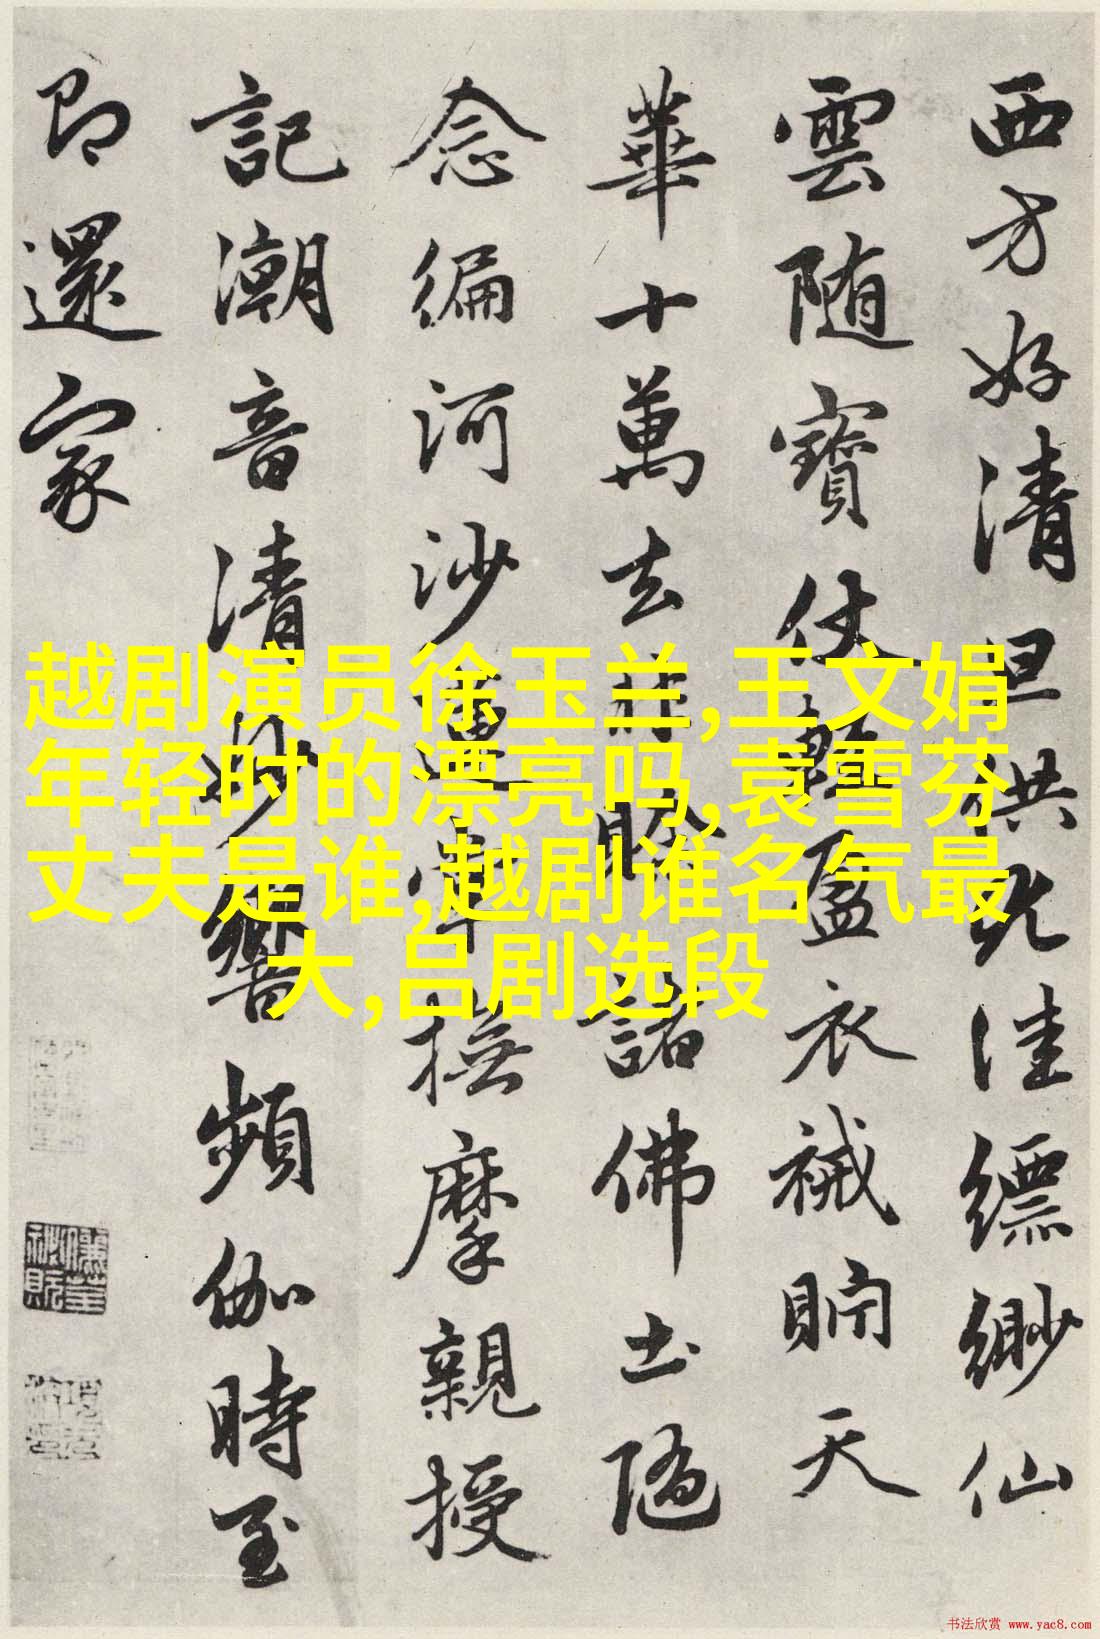 西方好清旦供尤佳縹緲仙
雲随寶仗輕盈衣祴貯天
華十萬去非賒諸佛土隨
念徧河沙蓮掌撫摩親授
記潮音清妙響頻伽時至
即還家
越剧演员徐玉兰,王文娟
年轻时的漂亮吗,袁雪芬
丈夫是谁,越剧谁名气最
大,吕剧选段
书法欣赏 www.yac8.com